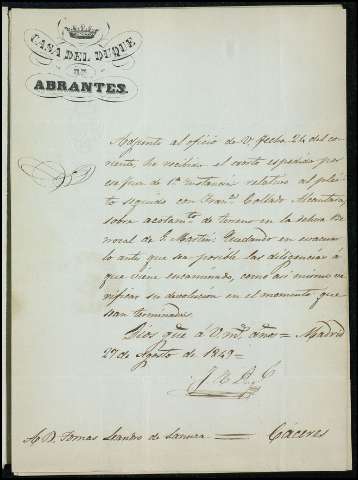 CASA DEL DUQUE
DE
ABRANTES.
Adjunto al oficio de V. fecha 24 del cor
riente, he recibido el esorto espedido por
ese Juz. de 1ª instancia relativo al plei
to seguido con Franco. Collado Alcantara,
sobre acotamto. de terreno en la
de S. Martin: Quedando en evacuar
lo antes que sea posible las diligencias á
que viene encaminado, como asi mismo ve
rificar su devolucion en el momento que
sean terminadas.
Dios gue. á V. ms. años = Madrid
27 de Agosto de 1849 =
A D. Tomas Leandro de = Cáceres